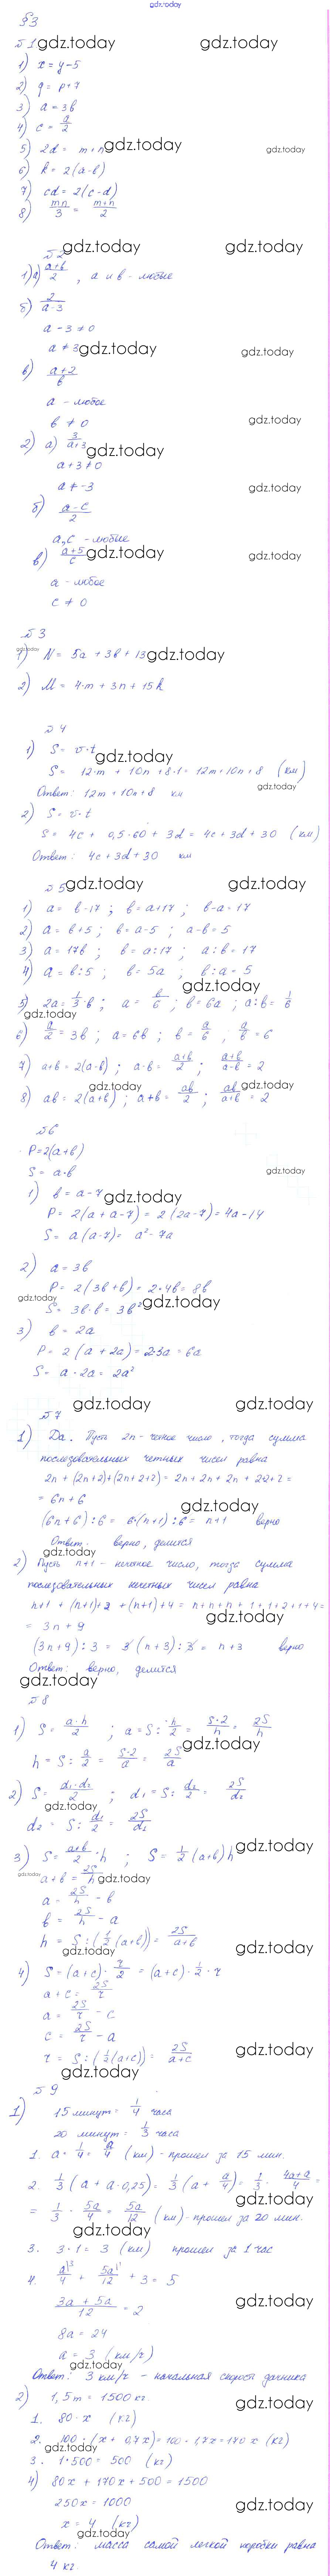 gdz.today
§3
№1 gdz.today gdz.today
1) x = y - 5
2) q = p + 7
3) a = 3b
4) c = a/2
5) 2d = m + n gdz.today gdz.today
6) k = 2(a-b)
7) cd = 2(c-d)
8) mn/3 = (m+n)/2
№2 gdz.today gdz.today
1) а) (a+b)/2 , a и b - любые
б) 2/(a-3)
a - 3 ≠ 0
a ≠ 3 gdz.today gdz.today
в) (a+2)/b
a - любое
b ≠ 0 gdz.today
2) а) 3/(a+3) gdz.today
a + 3 ≠ 0
a ≠ -3 gdz.today
б) (a-c)/2
a, c - любые
в) (a+5)/c gdz.today gdz.today
a - любое
c ≠ 0
№3
gdz.today
1) N = 5a + 3b + 13 gdz.today
2) M = 4·m + 3n + 15k
№4
1) S = v·t gdz.today
S = 12·m + 10n + 8·1 = 12m + 10n + 8 (км)
Ответ: 12m + 10n + 8 км gdz.today
2) S = v·t
S = 4c + 0,5·60 + 3d = 4c + 3d + 30 (км)
Ответ: 4c + 3d + 30 км
№5 gdz.today gdz.today
1) a = b - 17 ; b = a + 17 ; b - a = 17
2) a = b + 5 ; b = a - 5 ; a - b = 5
3) a = 17b ; b = a : 17 ; a : b = 17
4) a = b : 5 ; b = 5a ; b : a = 5
gdz.today
5) 2a = 1/3·b ; a = b/6 ; b = 6a ; a : b = 1/6
gdz.today
6) a/2 = 3b ; a = 6b ; b = a/6 ; a/b = 6
7) a+b = 2(a-b) ; a-b = (a+b)/2 ; (a+b)/(a-b) = 2
gdz.today gdz.today
8) ab = 2(a+b) ; a+b = ab/2 ; ab/(a+b) = 2
№6
P = 2(a+b)
S = a·b gdz.today
1) b = a - 7 gdz.today
P = 2(a + a - 7) = 2(2a - 7) = 4a - 14
S = a(a-7) = a² - 7a
2) a = 3b
P = 2(3b + b) = 2·4b = 8b
gdz.today
S = 3b·b = 3b² gdz.today
3) b = 2a
P = 2(a + 2a) = 2·3a = 6a
S = a·2a = 2a²
gdz.today gdz.today
№7
1) Да. Пусть 2n - четное число, тогда сумма
последовательных четных чисел равна
2n + (2n+2) + (2n+2+2) = 2n + 2n + 2n + 2+2+2 =
= 6n + 6 gdz.today
(6n+6) : 6 = 6(n+1) : 6 = n+1 верно
Ответ: верно, делится
gdz.today
2) Пусть n+1 - нечетное число, тогда сумма
последовательных нечетных чисел равна
n+1 + (n+1)+2 + (n+1)+4 = n+n+n+1+1+2+1+4 =
gdz.today
= 3n + 9
(3n+9) : 3 = 3(n+3) : 3 = n+3 верно
Ответ: верно, делится
gdz.today
№8
1) S = a·h/2 ; a = S : h/2 = S·2/h = 2S/h
gdz.today
h = S : a/2 = S·2/a = 2S/a
2) S = d₁·d₂/2 ; d₁ = S : d₂/2 = 2S/d₂
gdz.today
d₂ = S : d₁/2 = 2S/d₁
3) S = (a+b)/2 · h ; S = 1/2(a+b)h gdz.today
gdz.today a+b = 2S/h gdz.today
a = 2S/h - b
b = 2S/h - a
h = S : (1/2(a+b)) = 2S/(a+b)
gdz.today gdz.today
4) S = (a+c)·r/2 = (a+c)·1/2·r
a+c = 2S/r
a = 2S/r - c
c = 2S/r - a
r = S : (1/2(a+c)) = 2S/(a+c) gdz.today
gdz.today
№9
1) 15 минут = 1/4 часа
20 минут = 1/3 часа
gdz.today
1. a·1/4 = a/4 (км) - прошел за 15 мин.
2. 1/3(a + a·0,25) = 1/3(a + a/4) = 1/3·(4a+a)/4 =
gdz.today
= 1/3·5a/4 = 5a/12 (км) - прошел за 20 мин.
gdz.today
3. 3·1 = 3 (км) прошел за 1 час
4. a/4 + 5a/12 + 3 = 5
(3a + 5a)/12 = 2 gdz.today
8a = 24
a = 3 (км/ч)
gdz.today
Ответ: 3 км/ч - начальная скорость дачника
2) 1,5 т = 1500 кг. gdz.today
1. 80·x (кг)
2. 100·(x + 0,7x) = 100·1,7x = 170x (кг)
gdz.today
3. 1·500 = 500 (кг)
4) 80x + 170x + 500 = 1500
250x = 1000 gdz.today
x = 4 (кг)
gdz.today
Ответ: масса самой легкой коробки равна
4 кг